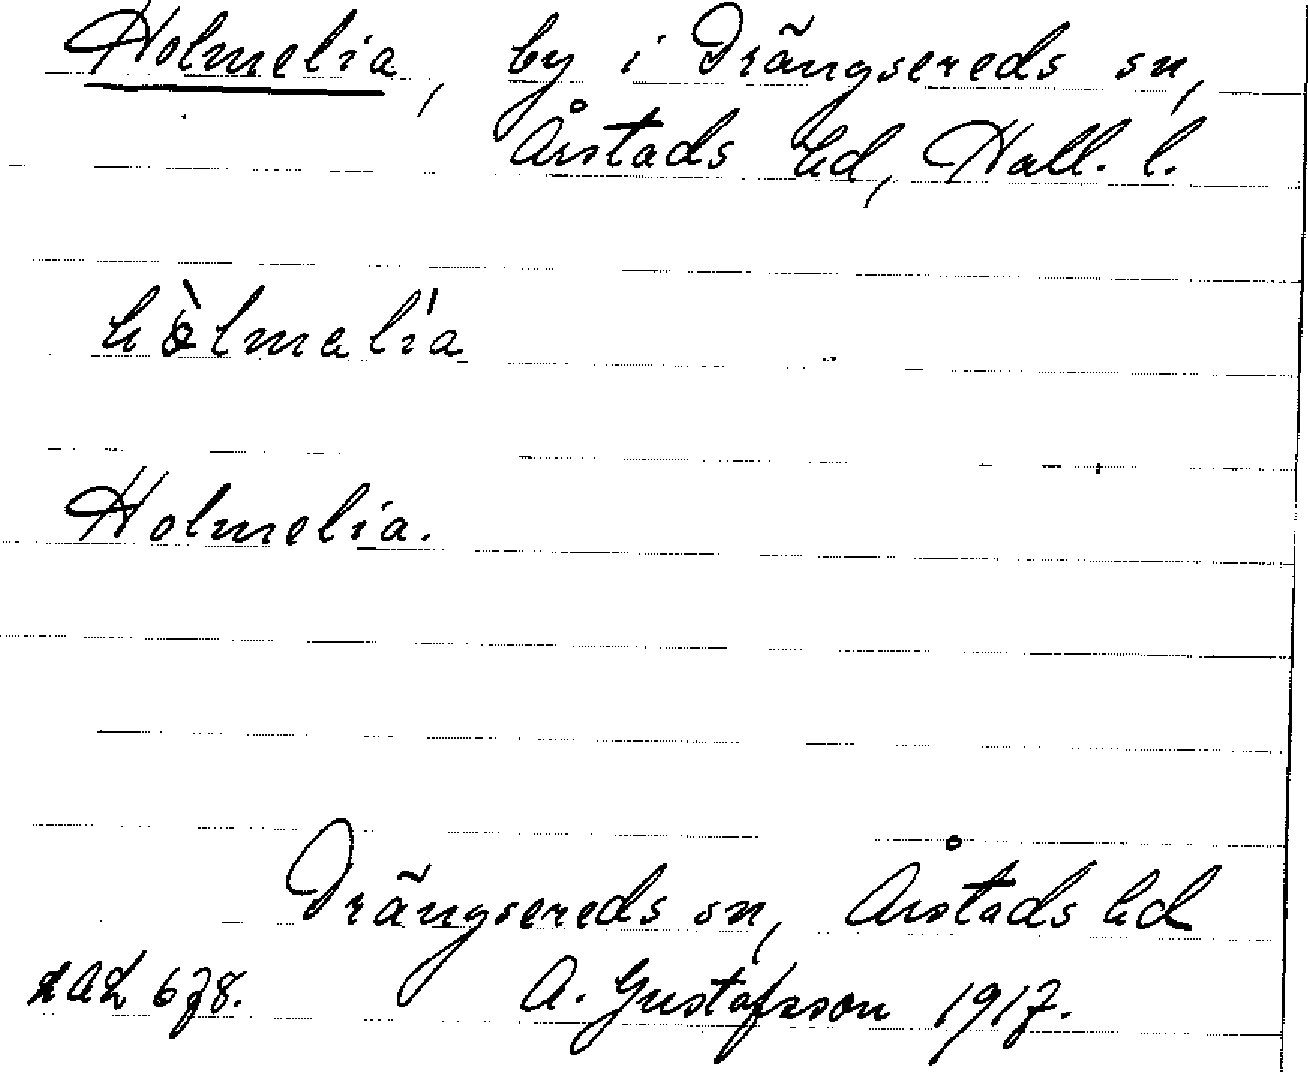 Holmelia, by i Drängsereds sn,
Årstads hd, Hall. l.
hòlmalía
Holmelia.
Drängsereds sn, Årstads hd
678. A. Gustafsson 1917.